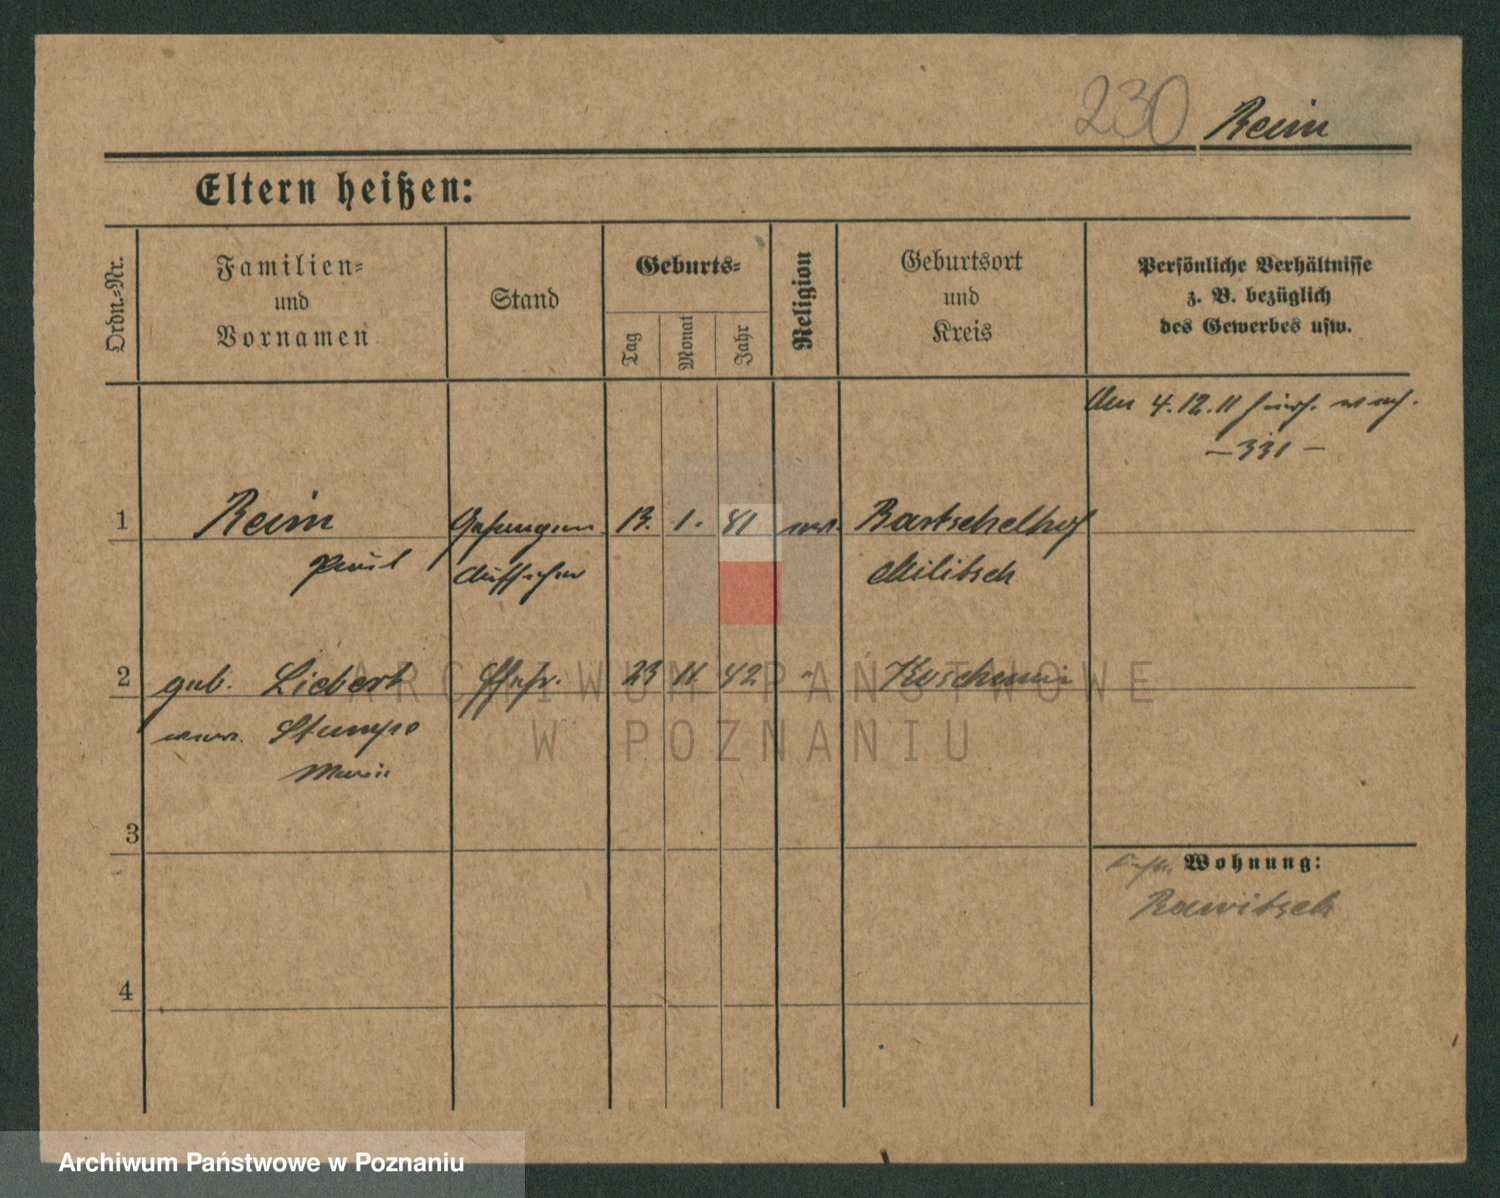 230 Reim
Eltern heißen:
Ordn.-Nr.
Familien-
und
Vornamen
Stand
Geburts-
Tag
Monat
Jahr
Religion
Geburtsort
und
Kreis
Persönliche Verhältnisse
z. B. bezüglich
des Gewerbes usw.
Am 4.12.11
— 331 —
1 Reim Gefangen. 13. 1. 81 Bartschelhof
Paul Aufseher Militsch
2 geb. Liebert Ehefr. 23 11 42 " Koschmin
Stumpe
Marie
3
Wohnung:
Rawitsch
4
ARCHIWUM PAŃSTWOWE
W POZNANIU
Archiwum Państwowe w Poznaniu